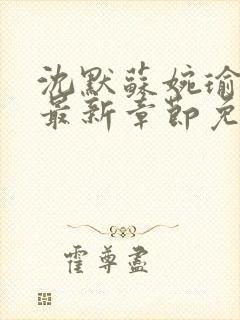 沈默蘇婉瑜
最新章節免
霍尊盡